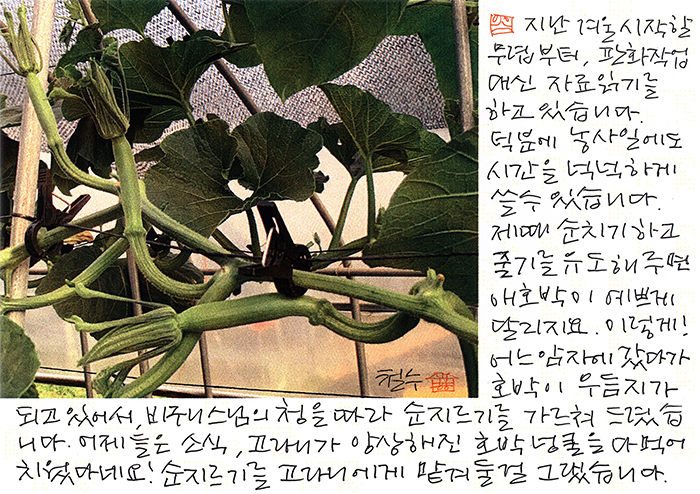 지난 겨울 시작할
무렵부터, 판화작업
대신 자료읽기를
하고 있습니다.
덕분에 농사일에도
시간을 넉넉하게
쓸 수 있습니다.
제때 순치기하고
줄기를 유도해 주면
애호박이 예쁘게
달리지요. 이렇게!
어느 암자에 갔다가
호박이 우듬지가
되고 있어서, 비구니스님의 청을 따라 순지르기를 가르쳐 드렸습
니다. 어제 들은 소식, 고라니가 앙상해진 호박 넝쿨을 다 먹어
치웠다네요! 순지르기를 고라니에게 맡겨둘걸 그랬습니다.
철수